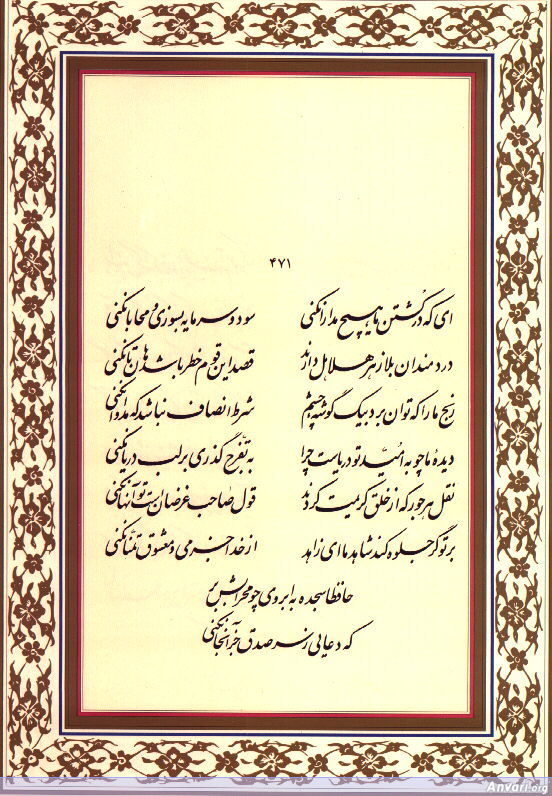 ۴۷۱
ای که در کشتن ما هیچ مدارا نکنی سود و سرمایه بسوزی و محابا نکنی
دردمندان بلا زهر هلاهل دارند قصد این قوم خطر باشد هان تا نکنی
رنج ما را که توان برد بیک گوشه چشم شرط انصاف نباشد که مداوا نکنی
دیده ما چو به امید تو دریاست چرا به تفرج گذری بر لب دریا نکنی
نقل هر جور که از خلق کریمت کردند قول صاحب غرضان است تو آنها نکنی
بر تو گر جلوه کند شاهد ما ای زاهد از خدا جز می و معشوق تمنا نکنی
حافظا سجده به ابروی چو محرابش بر
که دعایی ز سر صدق جز آنجا نکنی
Anvari.org